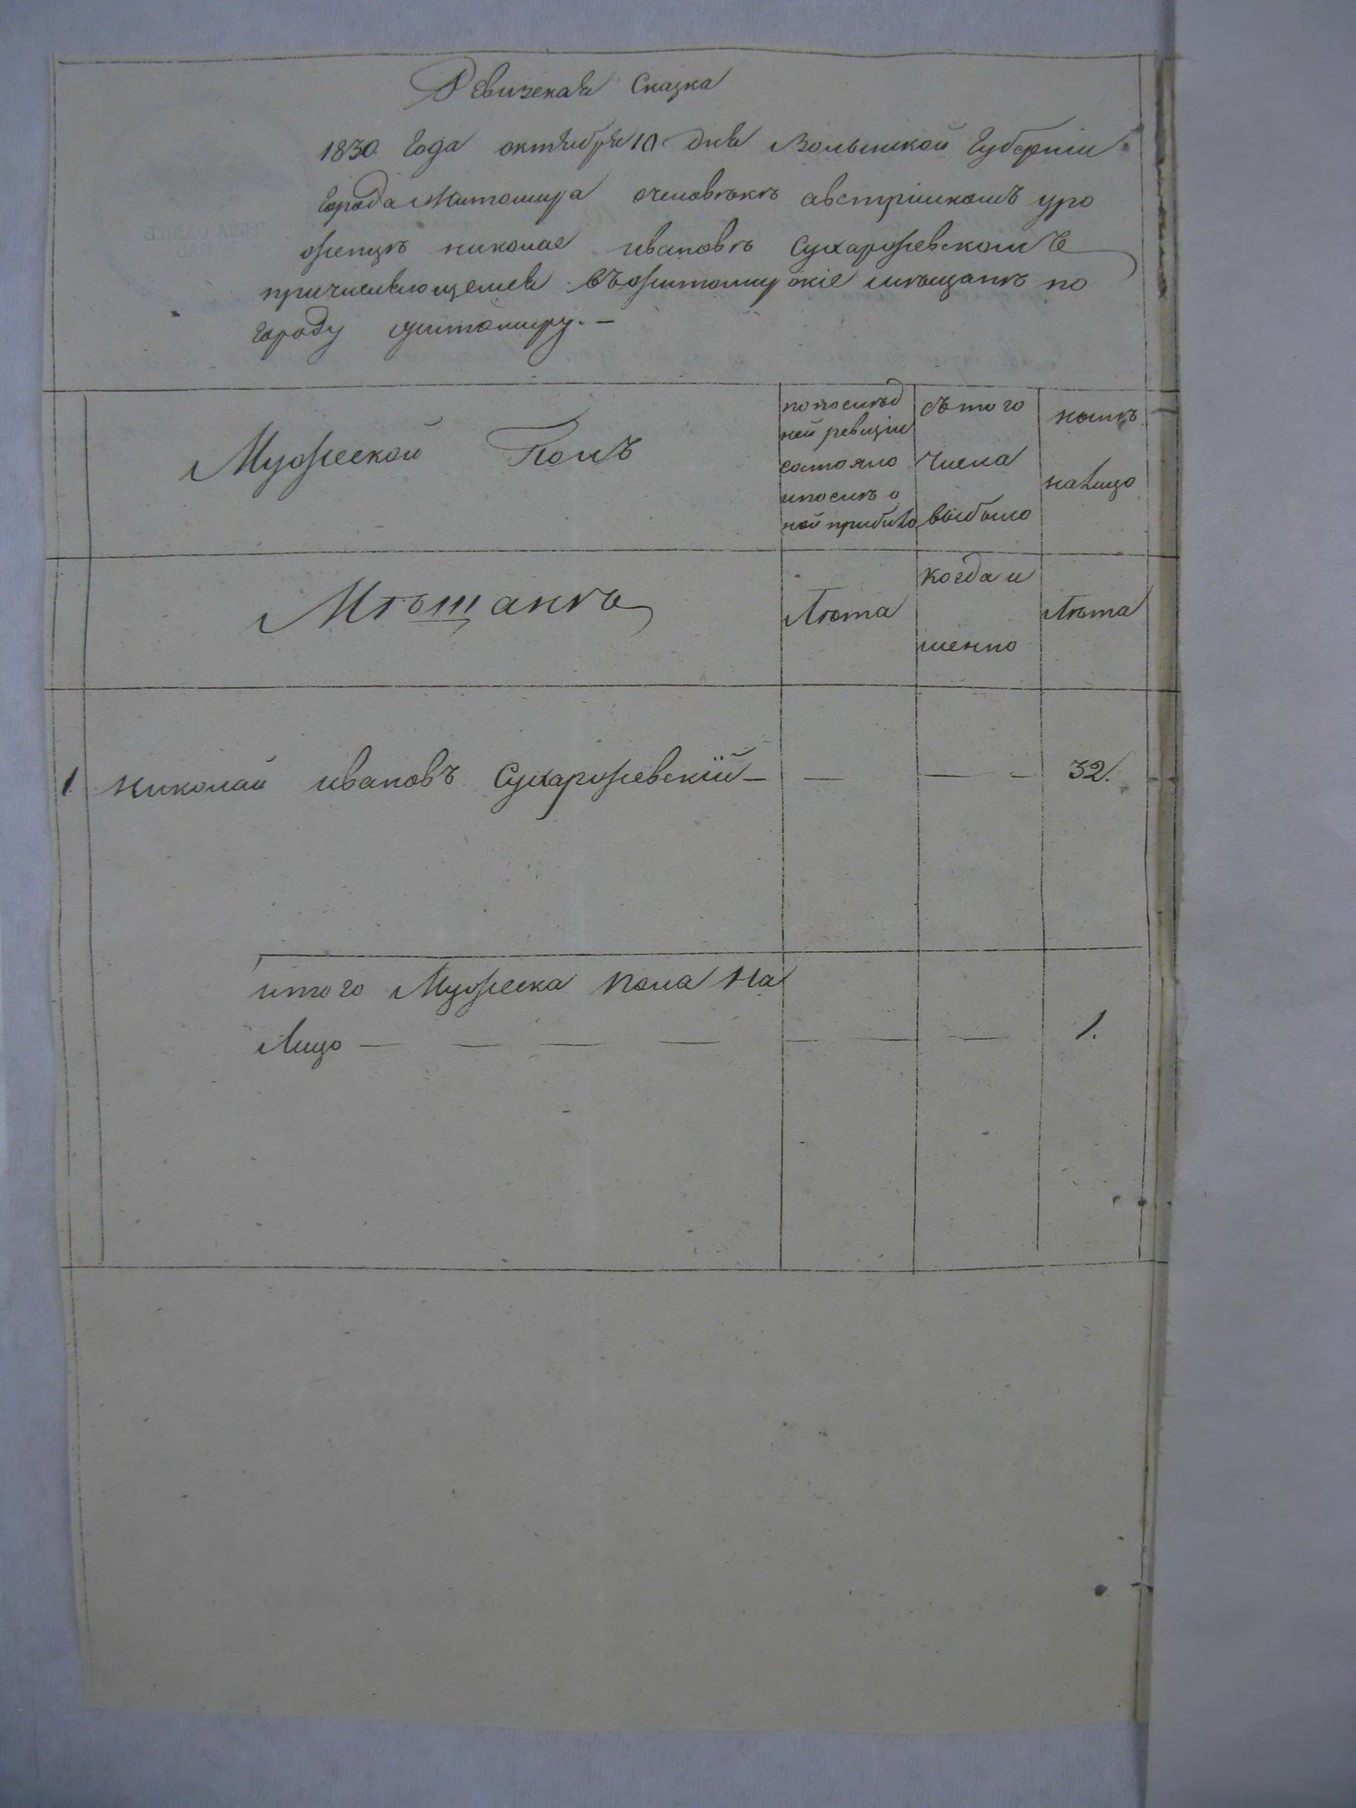 Ревизская Сказка
1830 Года октября 10 дня Волынской Губерніи
Города Житомира очеловѣкѣ австрійскомъ уро
женцѣ николае ивановѣ Сухаржевскомъ
причисляющемся въжитомирскіе мѣщанѣ по
Городу житомиру. —
Мужеской Полъ
по послѣд
ней ревизіи
состояло
ипослѣ о
ной прибыло
съ того
числа
выбыло
нынѣ
налицо
Мѣщанѣ
Лѣта
Когда и
менно
Лѣта
1 николай ивановъ Сухаржевскій — — — — 32.
итого Мужеска пола На
Лицо — — — — — — — 1.